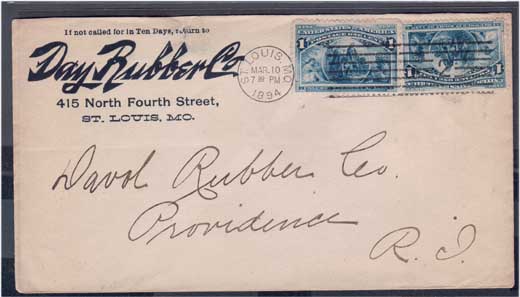 If not called for in Ten Days, return to
Day Rubber Co
415 North Fourth Street,
ST. LOUIS, MO.
ST. LOUIS, MO.
MAR. 10
7 PM
1894
1 1
1 1
Davol Rubber Co.
Providence
R. I.